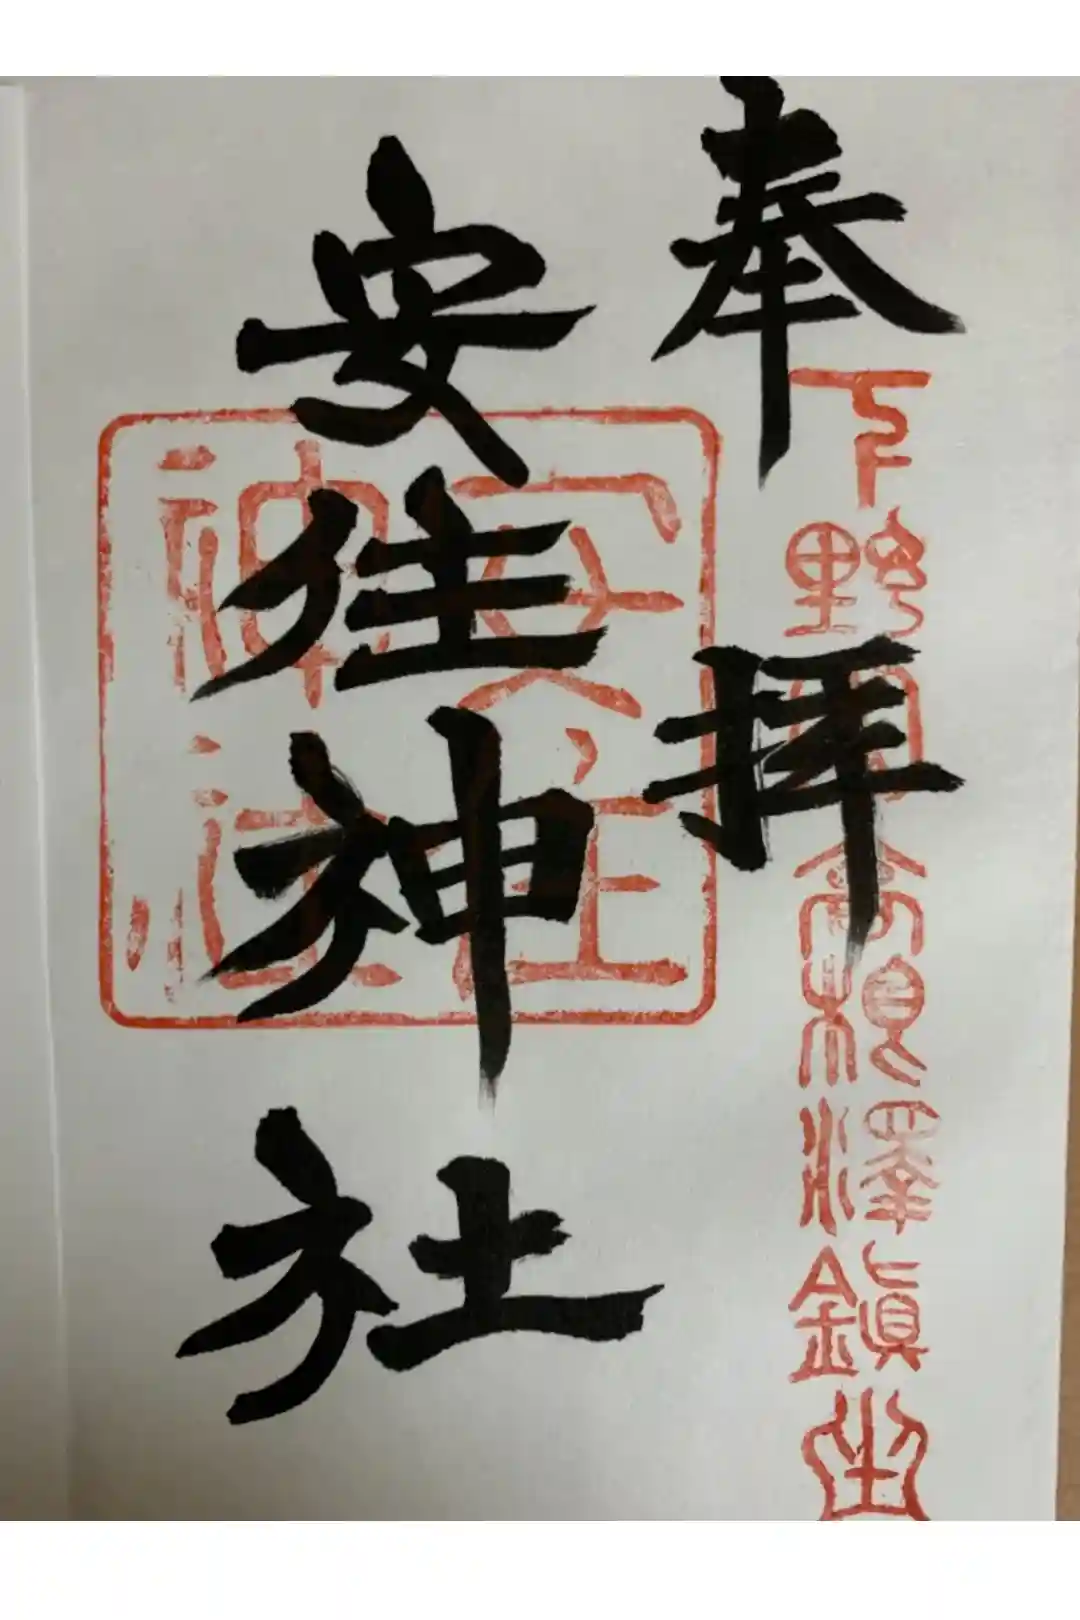 奉拝
下野国高根澤鎮坐
安住神社
安住
神社